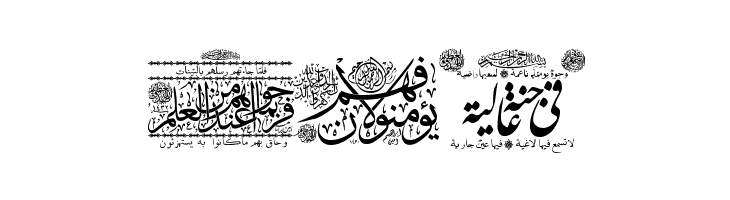 وجوة يومئذ ناعمة لسعيها راضية
في جنة عالية
لا تسمع فيها لاغية فيها عين جارية
بسم الله الرحمن الرحيم
فهم لا يؤمنون
فلما جاءتهم رسلهم بالبينات
فرحوا بما عندهم من العلم
وحاق بهم ما كانوا به يستهزئون